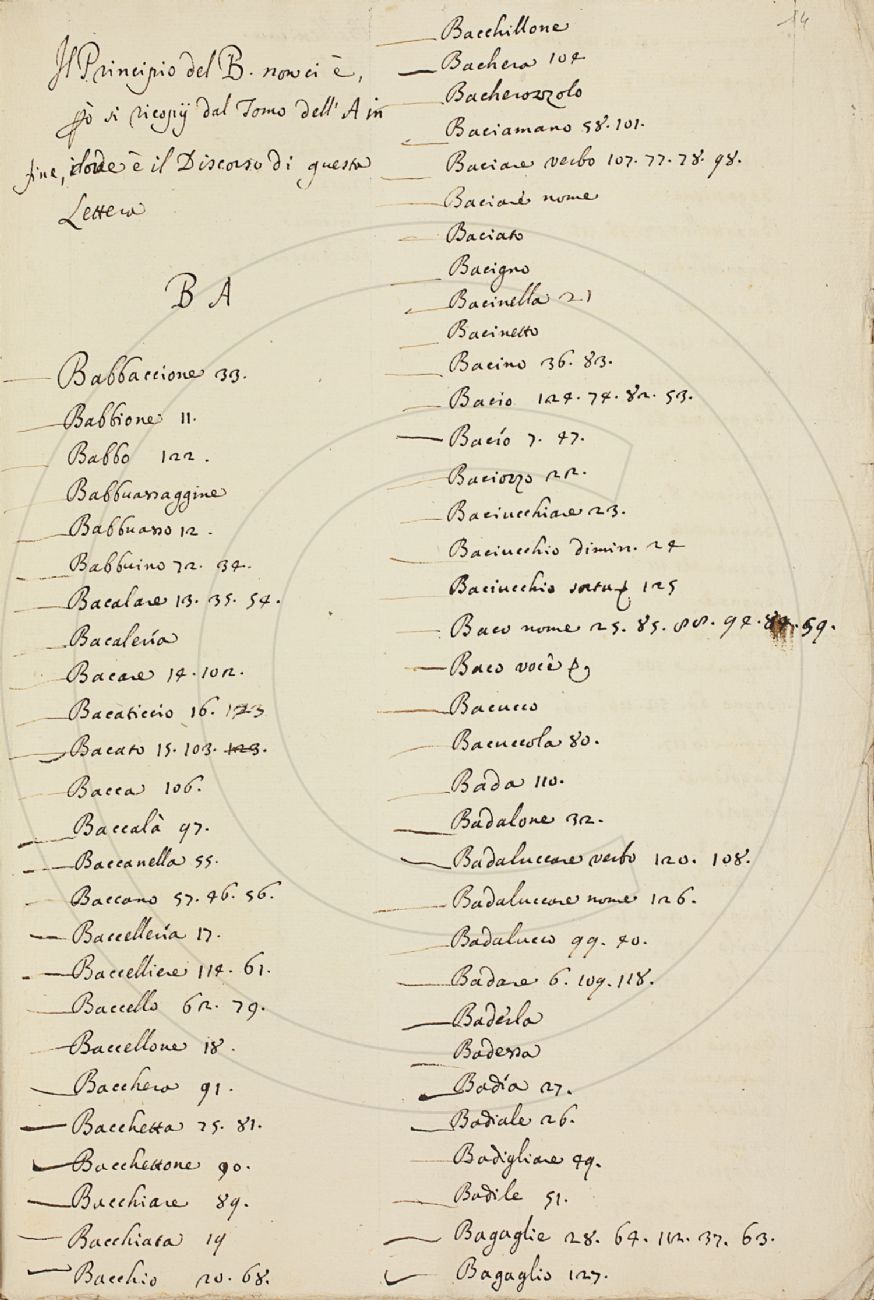 14
Il Principio del B. non ci è,
pò si ricopij dal Tomo dell' A in
fine, dove è il Discorso di questa
Lettera
B A
Babbaccione 33.
Babbione 11.
Babbo 122.
Babbuassaggine
Babbuasso 12.
Babbuino 72. 34.
Bacalare 13. 35. 54.
Bacaleria
Bacare 14. 102.
Bacaticcio 16. 123
Bacato 15. 103. 123.
Bacca 106.
Baccalà 97.
Baccanella 55.
Baccano 57. 46. 56.
Baccelleria 17.
Baccelliere 114. 61.
Baccello 62. 79.
Baccellone 18.
Bacchera 91.
Bacchetta 75. 81.
Bacchettone 90.
Bacchiare 89.
Bacchiata 19
Bacchio 20. 68.
Bacchillone
Bachera 104
Bacherozzolo
Baciamano 58. 101.
Baciare verbo 107. 77. 78. 98.
Baciare nome
Baciato
Bacigno
Bacinella 21
Bacinetto
Bacino 36. 83.
Bacio 124. 74. 82. 53.
Bacío 7. 47.
Baciozzo 22.
Baciucchiare 23.
Baciucchio dimin. 24
Baciucchio 125
Baco nome 25. 85. 88. 94. 59.
Baco voce
Bacucco
Bacuccola 80.
Bada 110.
Badalone 32.
Badaluccare verbo 120. 108.
Badaluccare nome 126.
Badalucco 99. 40.
Badare 6. 109. 118.
Baderla
Badessa
Badía 27.
Badiale 26.
Badigliare 49.
Badile 51.
Bagaglie 28. 64. 112. 37. 63.
Bagaglio 127.